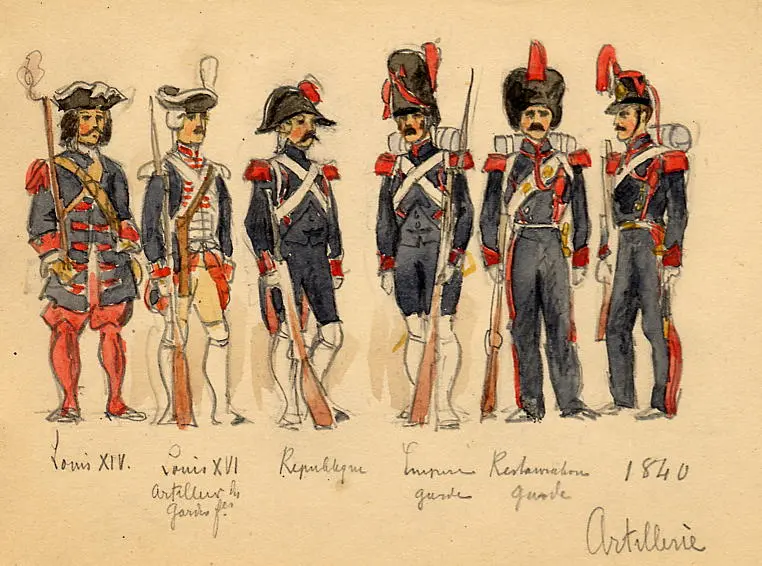 Louis XIV.
Louis XVI
Artilleur des
gardes fses
République
Empire
garde
Restauration
garde
1840
Artillerie